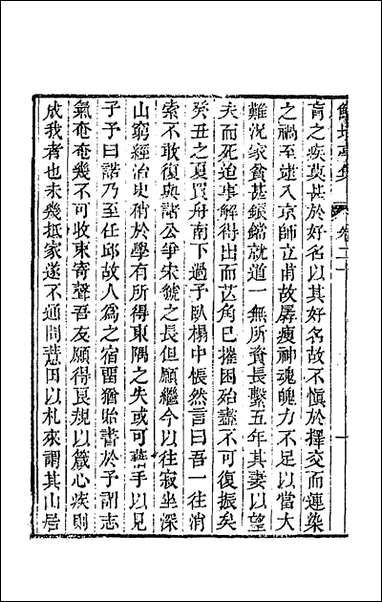 鮚埼亭集 卷二十
肓之疾莫甚於好名以其好名故不愼於擇交而蓮染
之禍至逮入京師立甫故孱瘦神魂魄力不足以當大
難況家貧甚鋃鐺就道一無所賫長繫五年其妻以望
夫而死迨事解得出而芒角已摧困殆盡不可復振矣
癸丑之夏買舟南下過予臥榻中悵然言曰吾一往消
索不敢復與諸公爭宋虢之長但願繼今以往寂坐深
山窮經治史稍於學有所得東隅之失或可藉手以見
子予曰諾乃至任邱故人為之宿畱猶貽書於予謂志
氣奄奄幾不可收東寄聲吾友願得良規以箴心疾則
成我者也未幾抵家遂不通問薏田以札來謂其山居